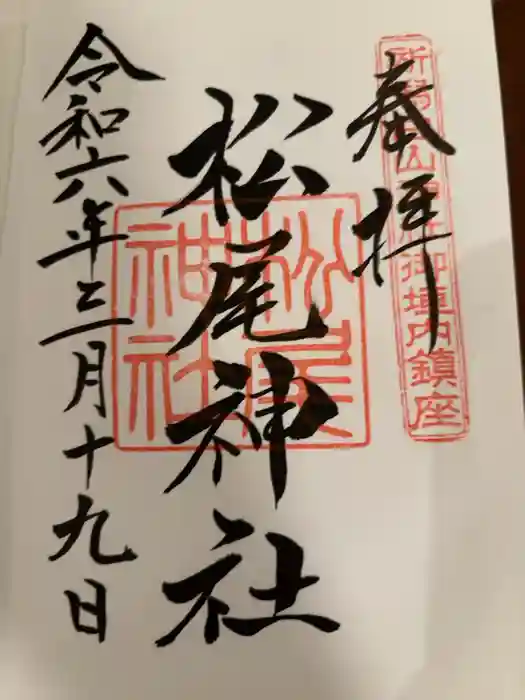 奉拝
御垣内鎮座
松尾神社
松尾神社
令和六年三月十九日